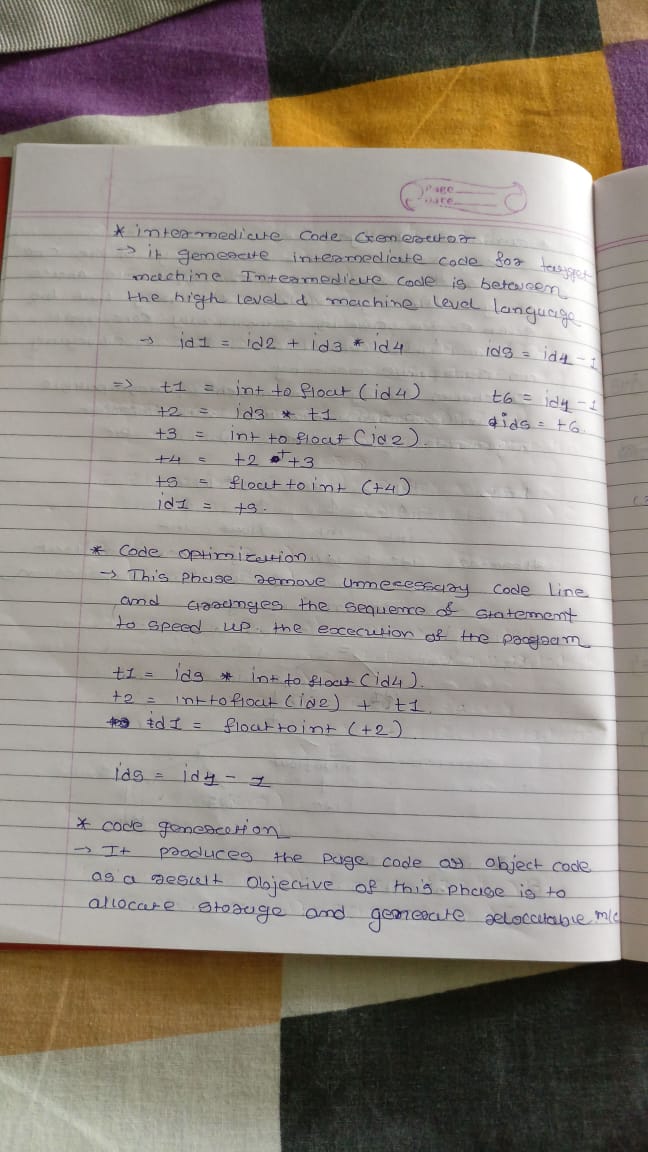 Page
Date
* intermediate code Generator
-> it generate intermediate code for targget
machine Intermediate code is between
the high level d machine level language
-> id1 = id2 + id3 * id4 id3 = id4 - 1
=> t1 = int to float (id4) t6 = id4 - 1
t2 = id3 * t1 ids = t6
t3 = int to float (id2)
t4 = t2 + t3
t5 = float to int (t4)
id1 = t5.
* Code optimization.
-> This phase remove unnecessary code line
and arranges the sequence of statement
to speed up the execution of the program
t1 = id3 * int to float (id4)
t2 = int to float (id2) + t1
id1 = float to int (t2)
ids = id4 - 1
* code generation
-> It produces the page code as object code
as a result objective of this phase is to
allocate storage and generate relocatable m/c